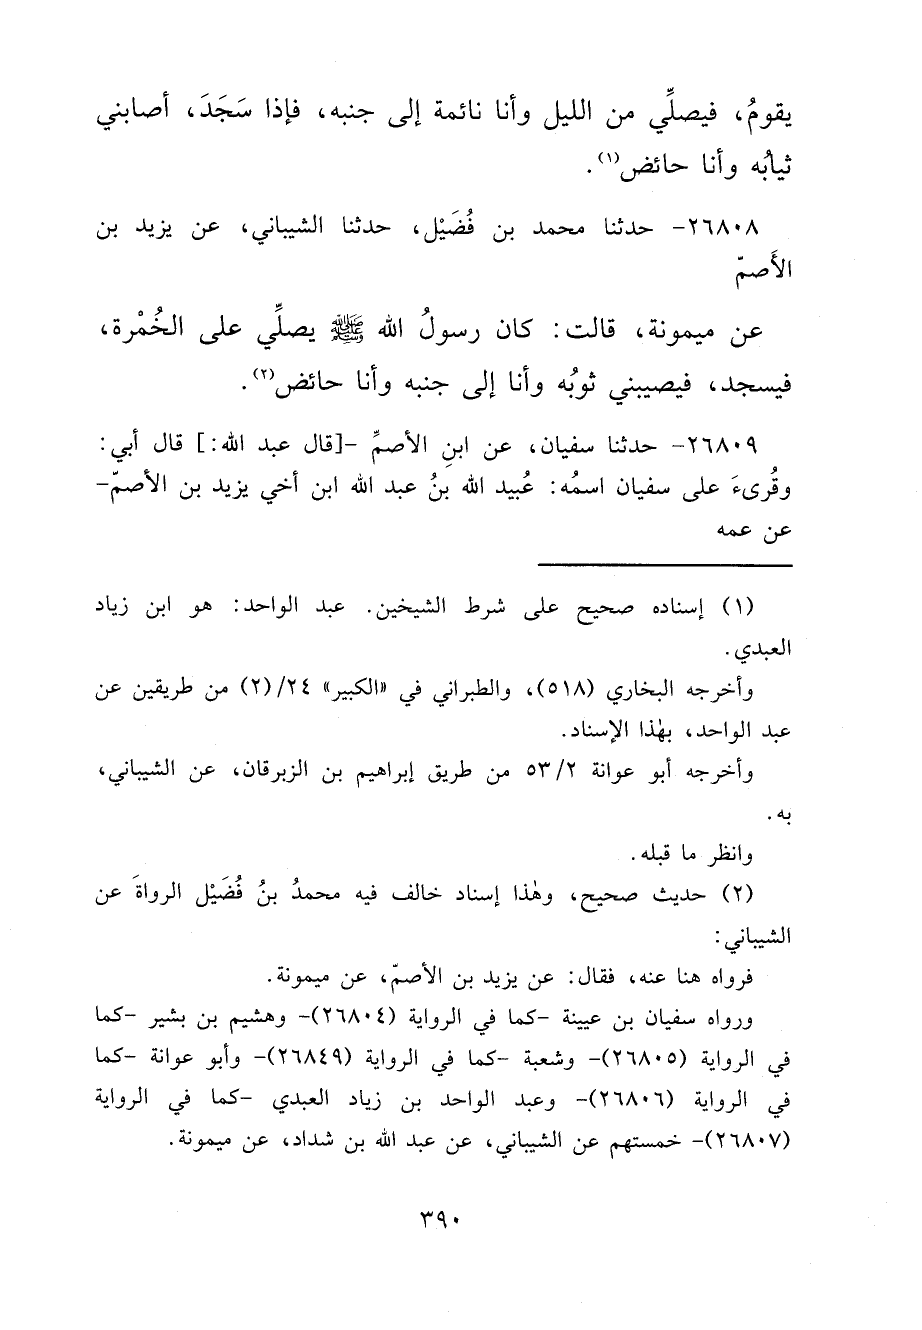 يقومُ، فيصلِّي من الليل وأنا نائمة إلى جنبه، فإذا سَجَدَ، أصابني
ثيابُه وأنا حائض(١).
٢٦٨٠٨- حدثنا محمد بن فُضَيْل، حدثنا الشيباني، عن يزيد بن
الأَصمّ
عن ميمونة، قالت: كان رسولُ الله ﷺ يصلِّي على الخُمْرة،
فيسجد، فيصيبني ثوبُه وأنا إلى جنبه وأنا حائض(٢).
٢٦٨٠٩- حدثنا سفيان، عن ابنِ الأصمِّ -[قال عبد الله:] قال أبي:
وقُرىءَ على سفيان اسمُه: عُبيد الله بنُ عبد الله ابن أخي يزيد بن الأصمّ-
عن عمه
(١) إسناده صحيح على شرط الشيخين. عبد الواحد: هو ابن زياد
العبدي.
وأخرجه البخاري (٥١٨)، والطبراني في «الكبير» ٢٤/(٢) من طريقين عن
عبد الواحد، بهٰذا الإسناد.
وأخرجه أبو عوانة ٥٣/٢ من طريق إبراهيم بن الزبرقان، عن الشيباني،
به.
وانظر ما قبله.
(٢) حديث صحيح، وهٰذا إسناد خالف فيه محمدُ بنُ فُضَيْل الرواةَ عن
الشيباني:
فرواه هنا عنه، فقال: عن يزيد بن الأصمّ، عن ميمونة.
ورواه سفيان بن عيينة -كما في الرواية (٢٦٨٠٤)- وهشيم بن بشير -كما
في الرواية (٢٦٨٠٥)- وشعبة -كما في الرواية (٢٦٨٤٩)- وأبو عوانة -كما
في الرواية (٢٦٨٠٦)- وعبد الواحد بن زياد العبدي -كما في الرواية
(٢٦٨٠٧)- خمستهم عن الشيباني، عن عبد الله بن شداد، عن ميمونة.
٣٩٠